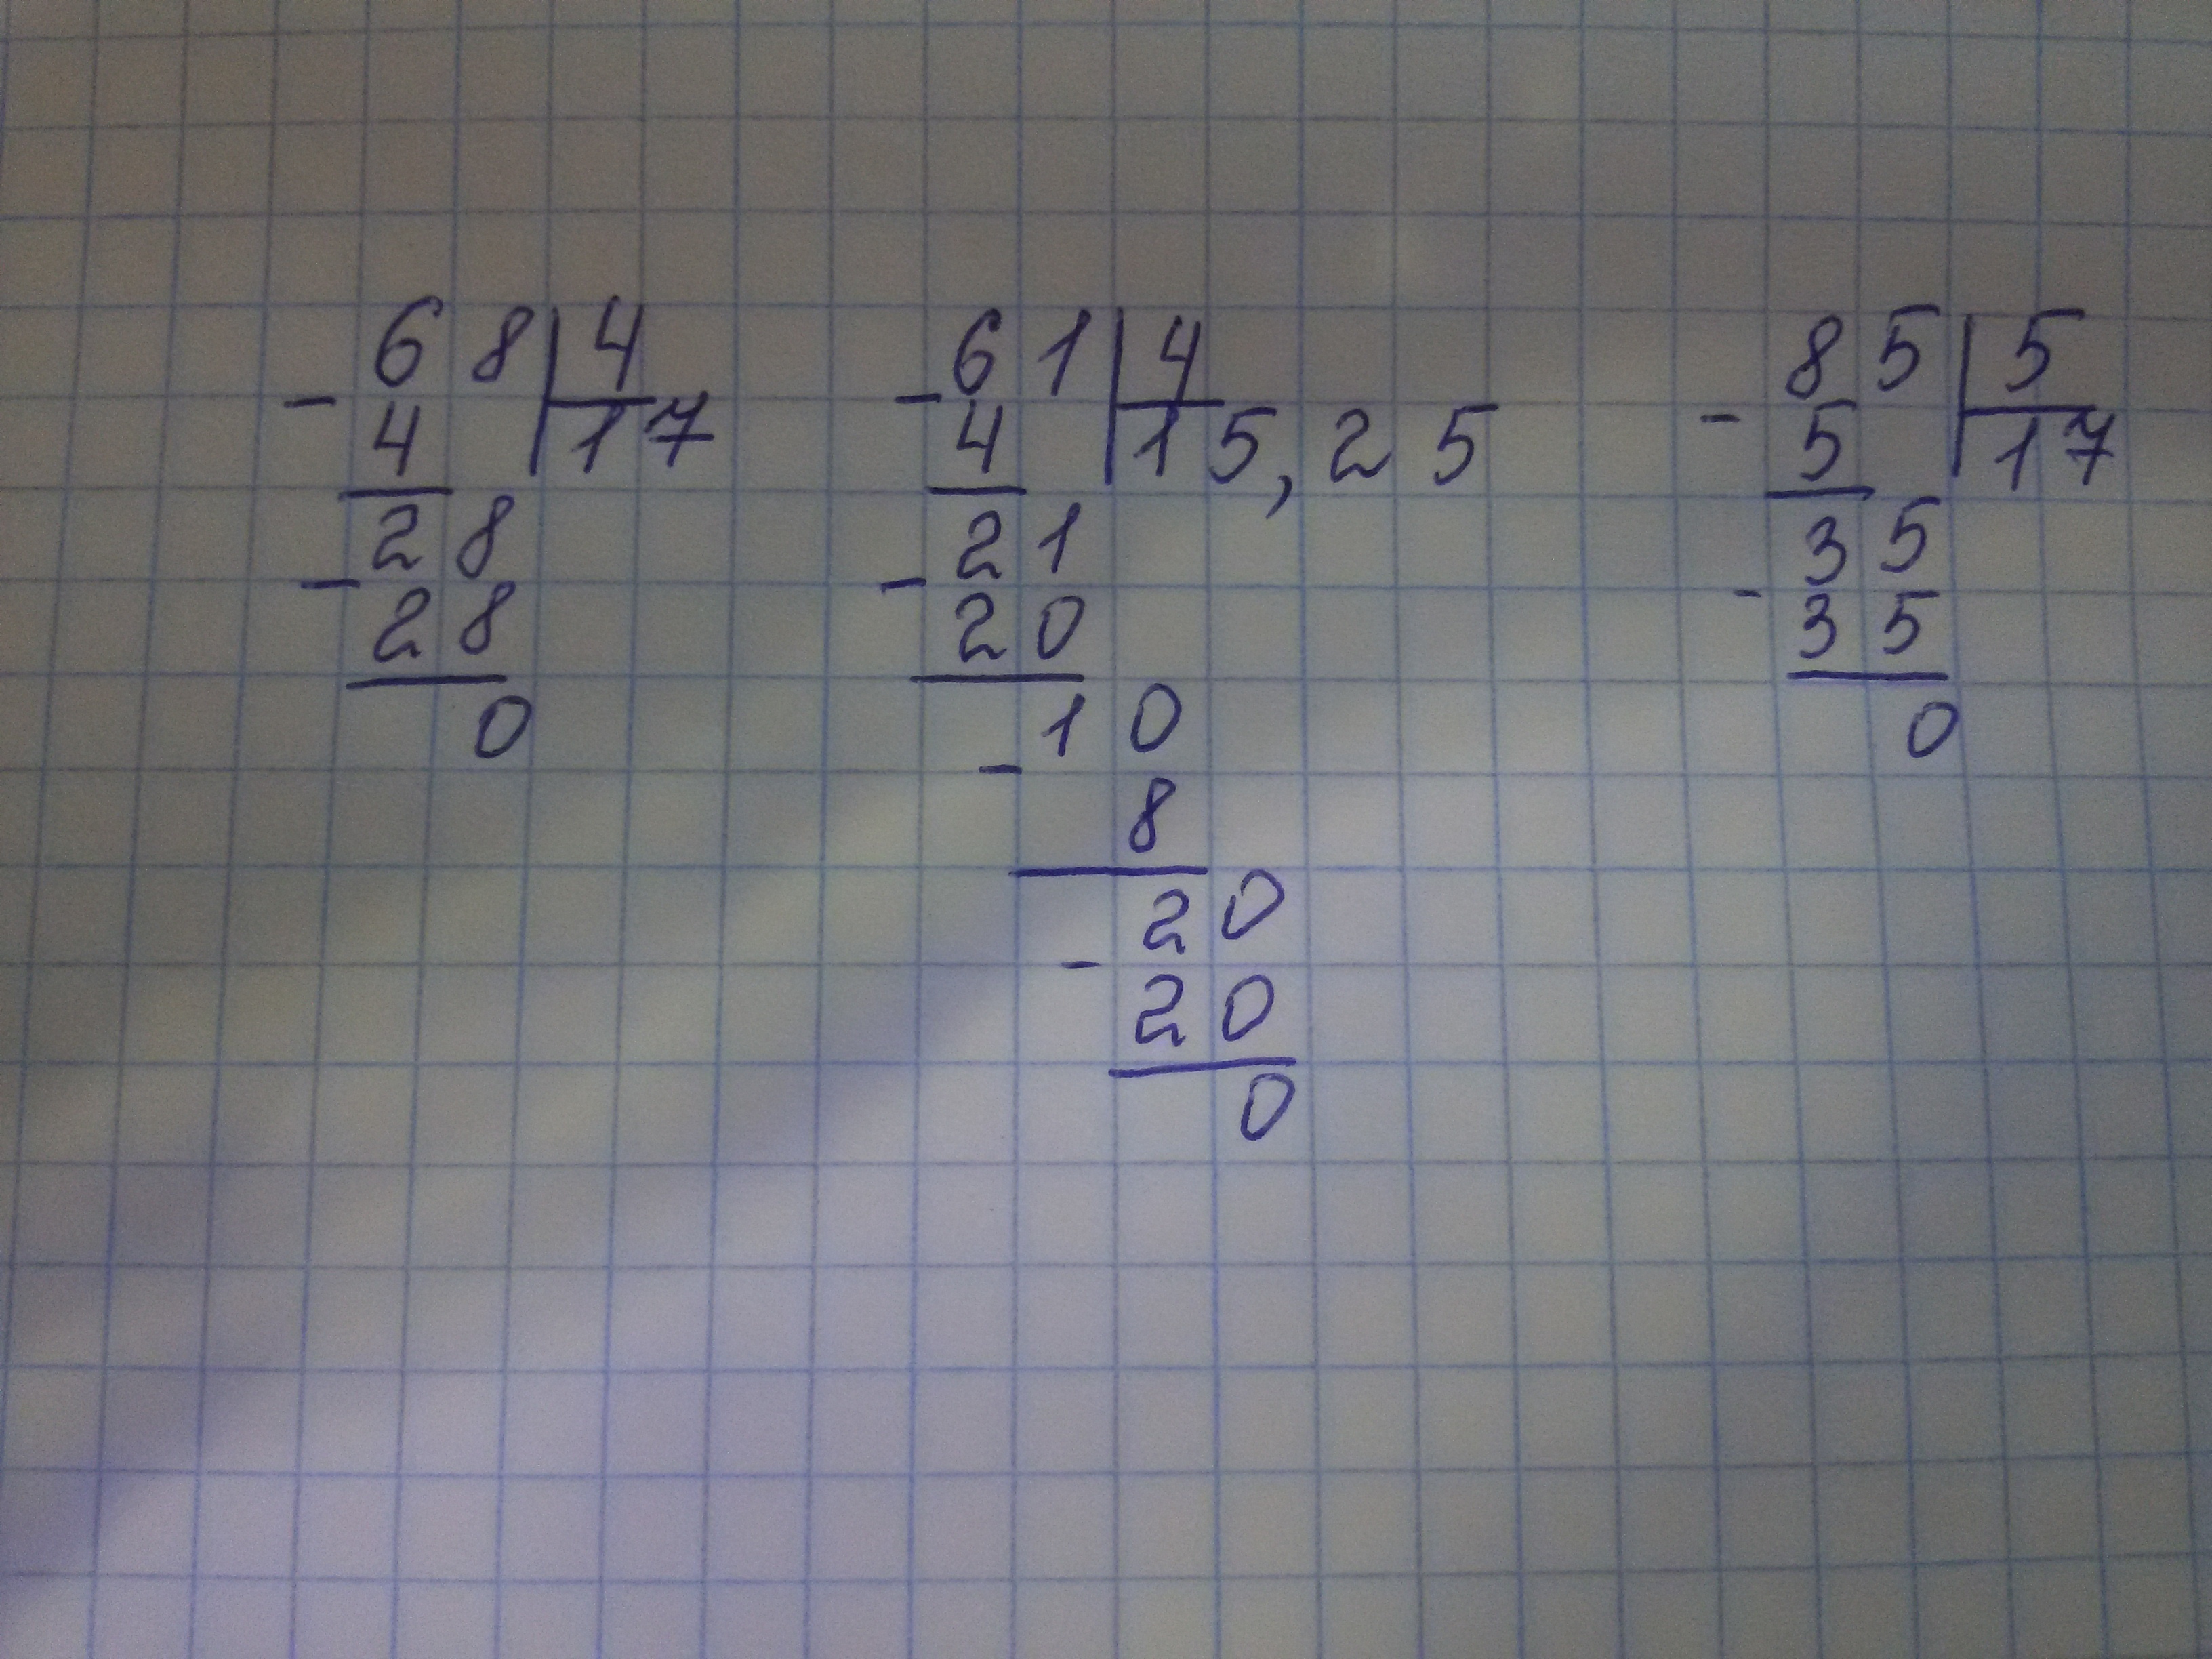 - 68 | 4
4 | 17
28
- 28
0
- 61 | 4
4 | 15,25
21
- 20
10
- 8
20
- 20
0
- 85 | 5
5 | 17
35
- 35
0